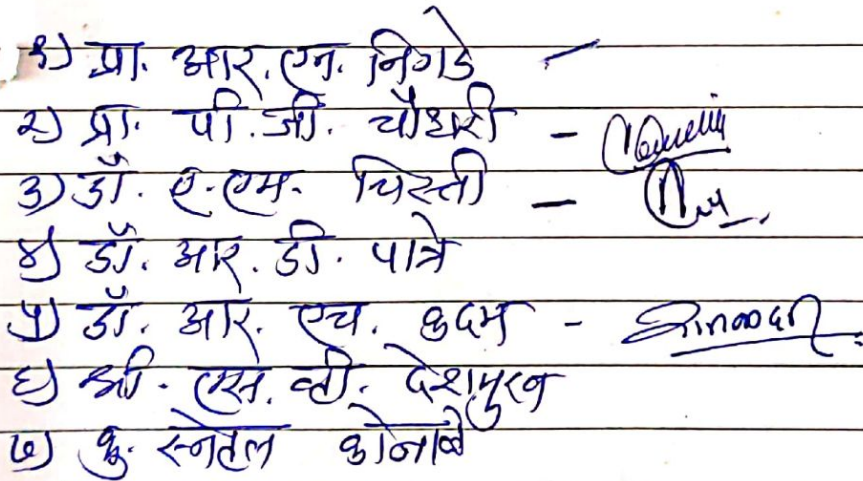 १) प्रा. आर. एन. निगडे -
२) प्रा. पी. जी. चौधरी -
३) डॉ. ए. एम. चिस्ती -
४) डॉ. आर. डी. पात्रे
५) डॉ. आर. एच. कदम -
६) श्री. एस. व्ही. देशमुख
७) कु. स्नेहल कोनाळे